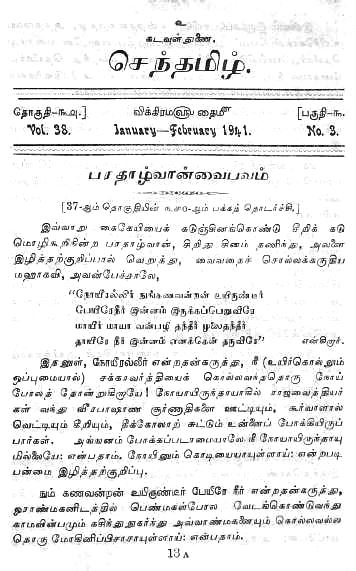 உ
கடவுள் துணை.
செந்தமிழ்.
தொகுதி-௩௮.] விக்கிரமவு தைமீ [பகுதி-௩.
Vol. 38. January—February 1941. No. 3.
பரதாழ்வான்வைபவம்
[37-ஆம் தொகுதியின் பக்கத் தொடர்ச்சி.]
இவ்வாறு கைகேயியைக் கடுஞ்சினங்கொண்டு சீறிக் கடு
மொழிகூறிகின்ற பரதாழ்வான், சிறிது சினம் தணிந்து, அவளை
இழித்தற்குறிப்பால் வெறுத்து, வைவதைச் சொல்லக்கருதிய
மஹாகவி, அவன்பேச்சாலே,
“நோயீரல்லீர் நுங்கணவன்றன் உயிருண்டீர்
பேயீரேநீர் இன்னம் இருக்கப்பெறுவீரே
மாயீர் மாயா வன்பழி தந்தீர் முலைதந்தீர்
தாயீரே நீர் இன்னம் எனக்கென் தருவீரே” என்கிறார்.
இதனுள், நோயீரல்லீர் என்றதன்கருத்து, நீ (உயிர்கொல்லும்
ஒப்புமையால்) சக்கரவர்த்தியைக் கொல்லவந்ததொரு நோய்
போலத் தோன்றுகிறாயே! நோயாயிருந்தாயாகில் ராஜவைத்தியர்
கள் வந்து வீரபாஷாண சூர்ணாதிகளை ஊட்டியும், கூர்வாளால்
வெட்டியும் கீறியும், தீக்கோலாற் சுட்டும் உன்னைப் போக்கியிருப்
பார்கள். அங்ஙனம் போக்கப்படாமையாலே நீ நோயாயிருந்தாயு
மில்லையே: என்பதாம். நோயினும் கொடியையாயுள்ளாய்: என்றபடி
பன்மை இழித்தற்குறிப்பு.
நும் கணவன்றன் உயிருண்டீர் பேயீரே நீர் என்றதன்கருத்து,
ஓராண்மகனிடத்தில் பெண்மகள்போல வேடங்கொண்டுவந்து
காமவின்பமும் கசிந்து நுகர்ந்து அவ்வாண்மகனையும் கொல்லவல்ல
தொரு மோகினிப்பிசாசாயுள்ளாய்: என்பதாம்.
13 A